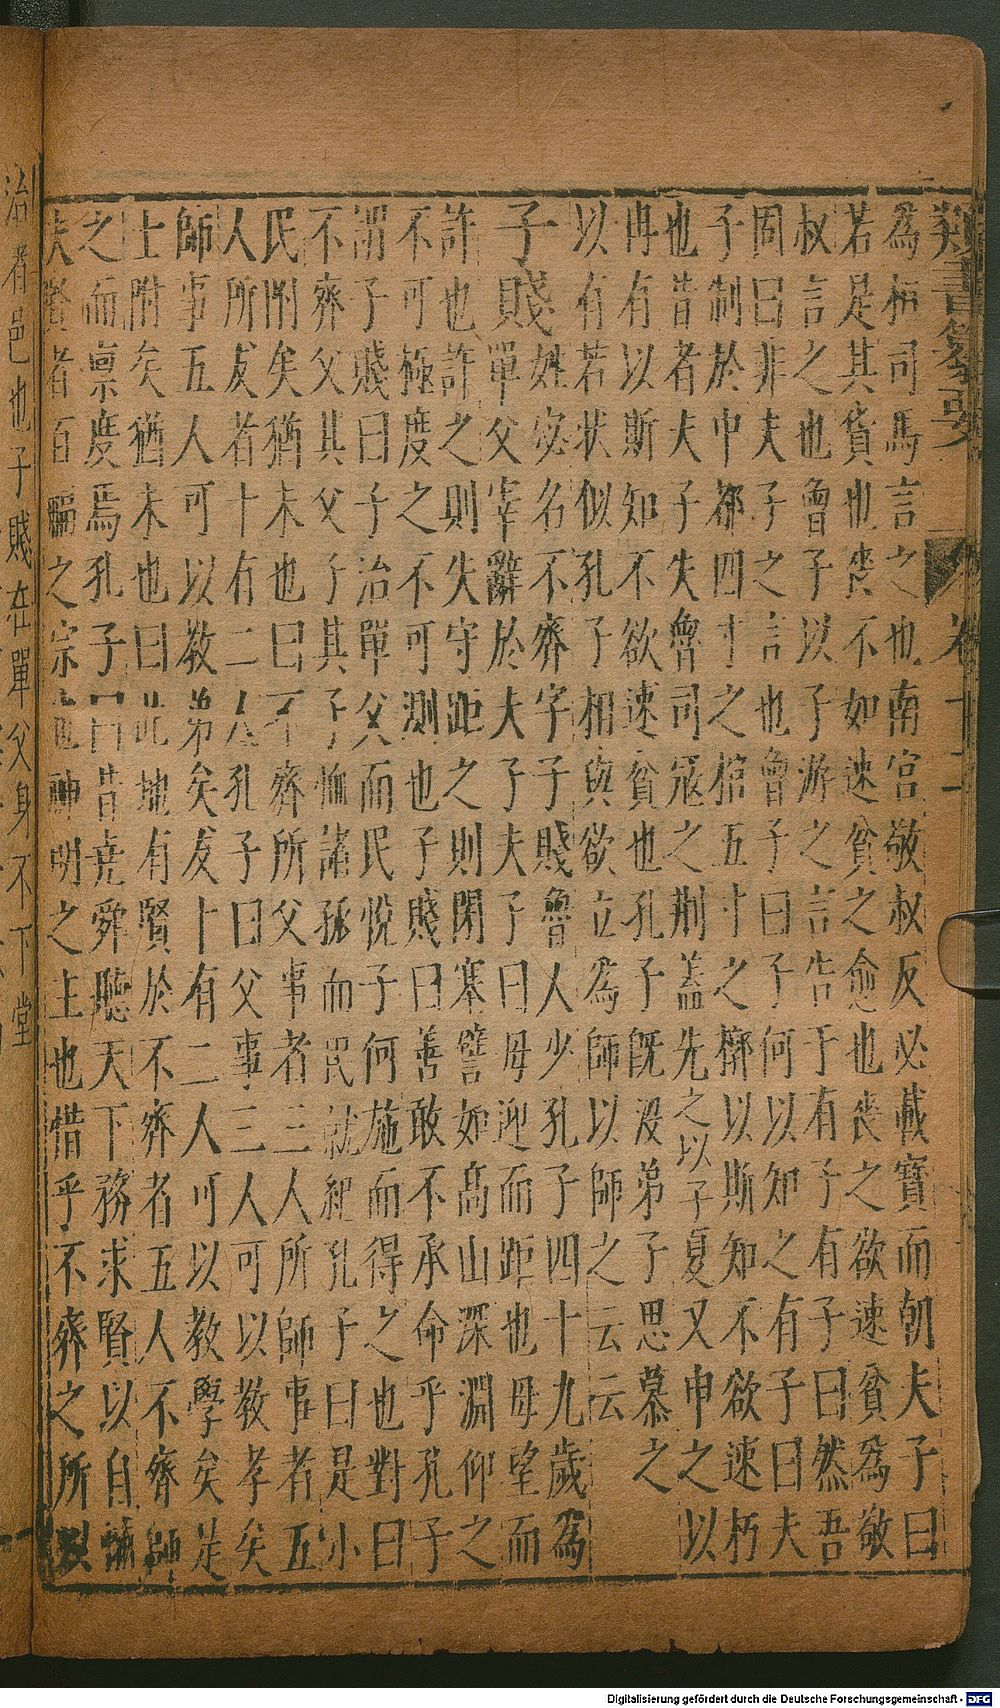 類書纂要 卷十二
為桓司馬言之也南宮敬叔反必載寶而朝夫子曰
若是其貨也喪不如速貧之愈也喪之欲速貧為敬
叔言之也曾子以子游之言告于有子有子曰然吾
固曰非夫子之言也曾子曰子何以知之有子曰夫
子制於中都四寸之棺五寸之槨以斯知不欲速朽
也昔者夫子失魯司寇之荆蓋先之以子夏又申之以
冉有以斯知不欲速貧也孔子既没弟子思慕之
以有若狀似孔子相與欲立為師以師之云云
子賤姓宓名不齊字子賤魯人少孔子四十九歲為
單父宰辭於夫子夫子曰毋迎而距也毋望而
許也許之則失守距之則閉塞譬如高山深淵仰之
不可極度之不可測也子賤曰善敢不承命乎孔子
謂子賤曰子治單父而民悅子何施而得之也對曰
不齊父其父子其子恤諸孤而哀喪紀孔子曰是小
民附矣猶未也曰不齊所父事者三人所師事者五
人所友者十有二人孔子曰父事三人可以教孝矣
師事五人可以教弟矣友十有二人可以教學矣是
士附矣猶未也曰此地有賢於不齊者五人不齊師
之而禀度焉孔子曰昔堯舜聽天下務求賢以自輔
夫賢者百福之宗也神明之主也惜乎不齊之所以
治者邑也子賤在單父身不下堂
Digitalisierung gefördert durch die Deutsche Forschungsgemeinschaft - DFG